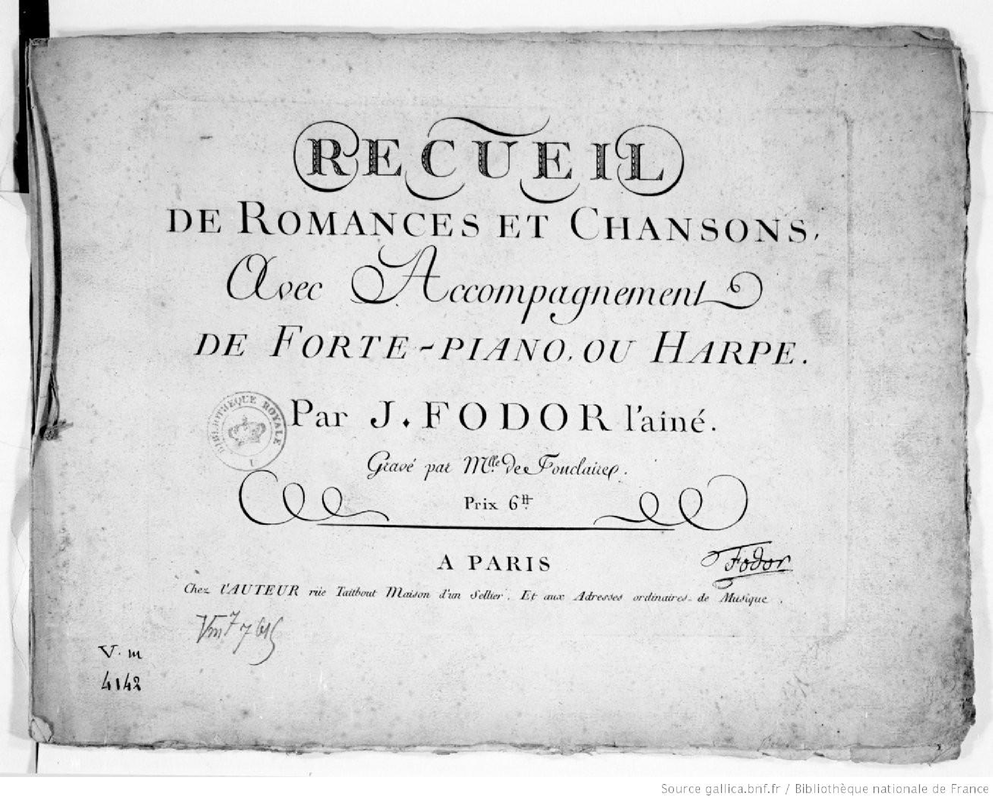 RECUEIL
DE ROMANCES ET CHANSONS,
Avec Accompagnement
DE FORTE-PIANO, OU HARPE.
Par J. FODOR l'ainé.
BIBLIOTHÈQUE ROYALE
Gravé par Mlle de Fonclaires.
Prix 6tt
A PARIS
Fodor
Chez l'AUTEUR rüe Taitbout Maison d'un Sellier. Et aux Adresses ordinaires de Musique.
Vm7
V. m
4142
Source gallica.bnf.fr / Bibliothèque nationale de France